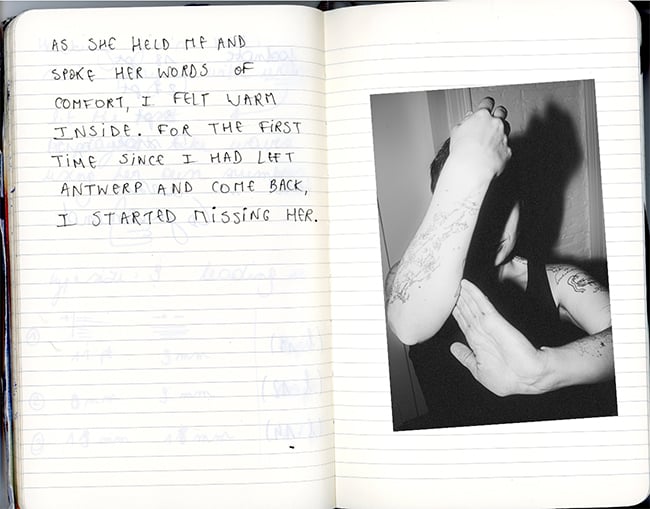 AS SHE HELD ME AND
SPOKE HER WORDS OF
COMFORT, I FELT WARM
INSIDE. FOR THE FIRST
TIME SINCE I HAD LEFT
ANTWERP AND COME BACK,
I STARTED MISSING HER.